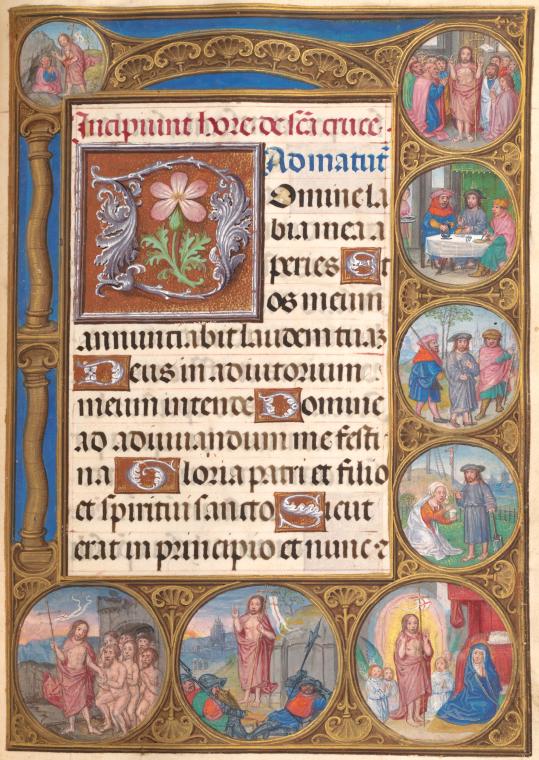 Incipiunt hore de sc̃a cruce.
Ad matut̃
Omine la
bia mea a
peries Et
os meum
annunciabit laudem tuaꝫ
Deus in adiutorium
meum intende Domine
ad adiuuandum me festi
na Gloria patri et filio
et spiritui sancto Sicut
erat in principio et nunc ⁊